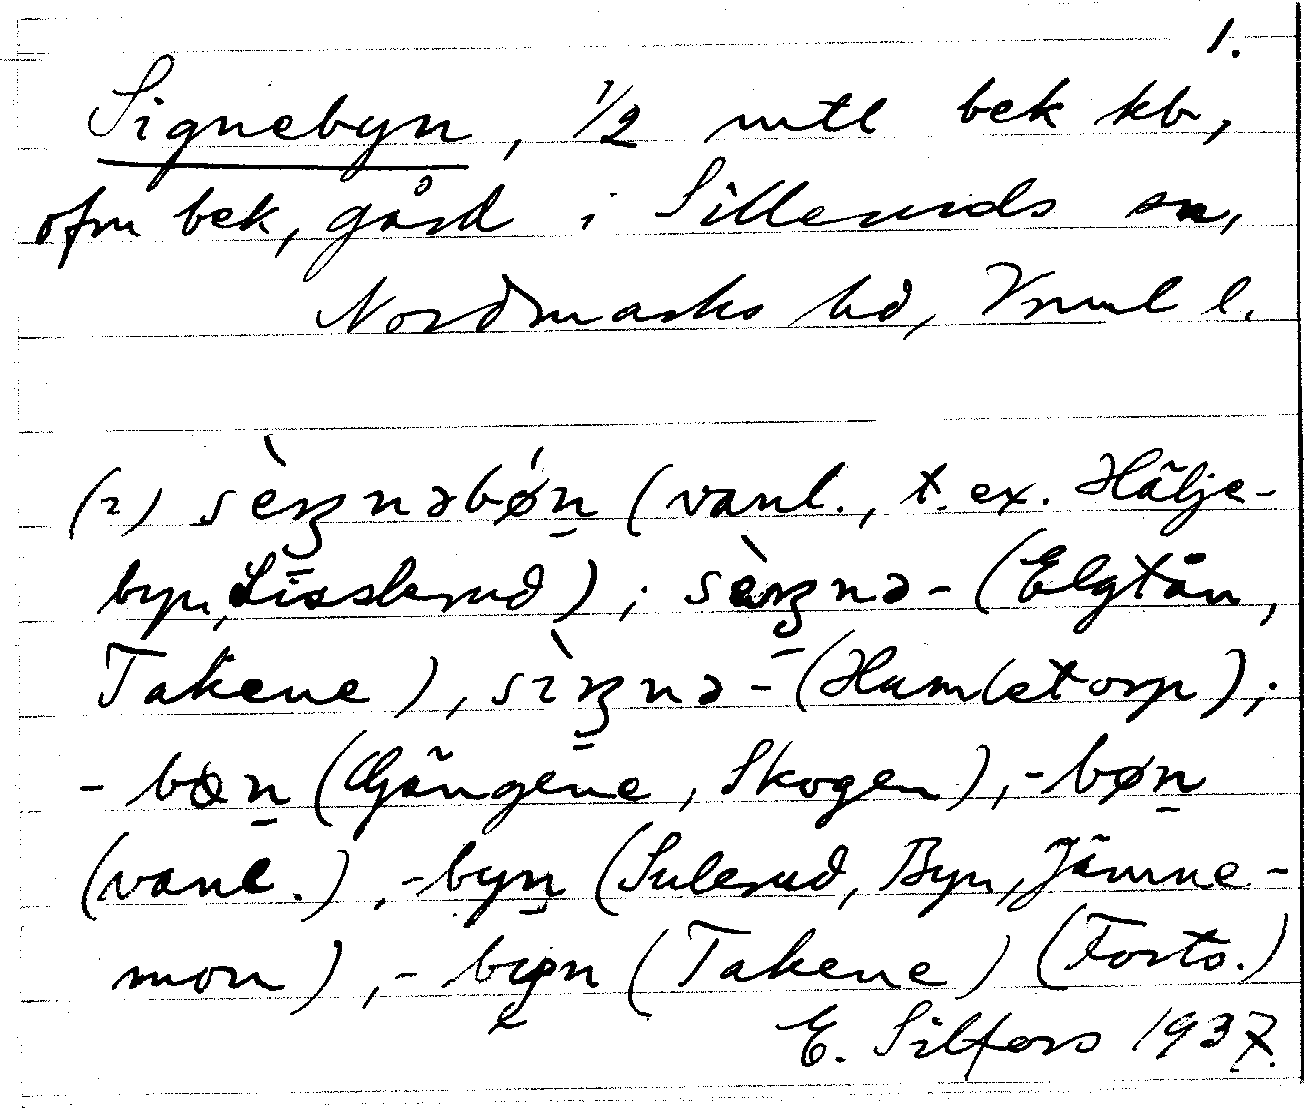 1.
Signebyn, 1/2 mtl bek kb,
ofm bek, gård i Silleruds sn,
Nordmarks hd, Vrml l.
(2) sèŋnəbǿn̠ (vanl., t.ex. Hälje-
byn, Lisslerud); sèŋnə- (Elgtån,
Takene), sìŋnə- (Humletorp);
- bœn̠ (Gängene, Skogen), -bøn̠
(vanl.), -byn̠ (Sulerud, Byn, Jämne-
mon), - (Takene) (Forts.)
E. Silfors 1937.